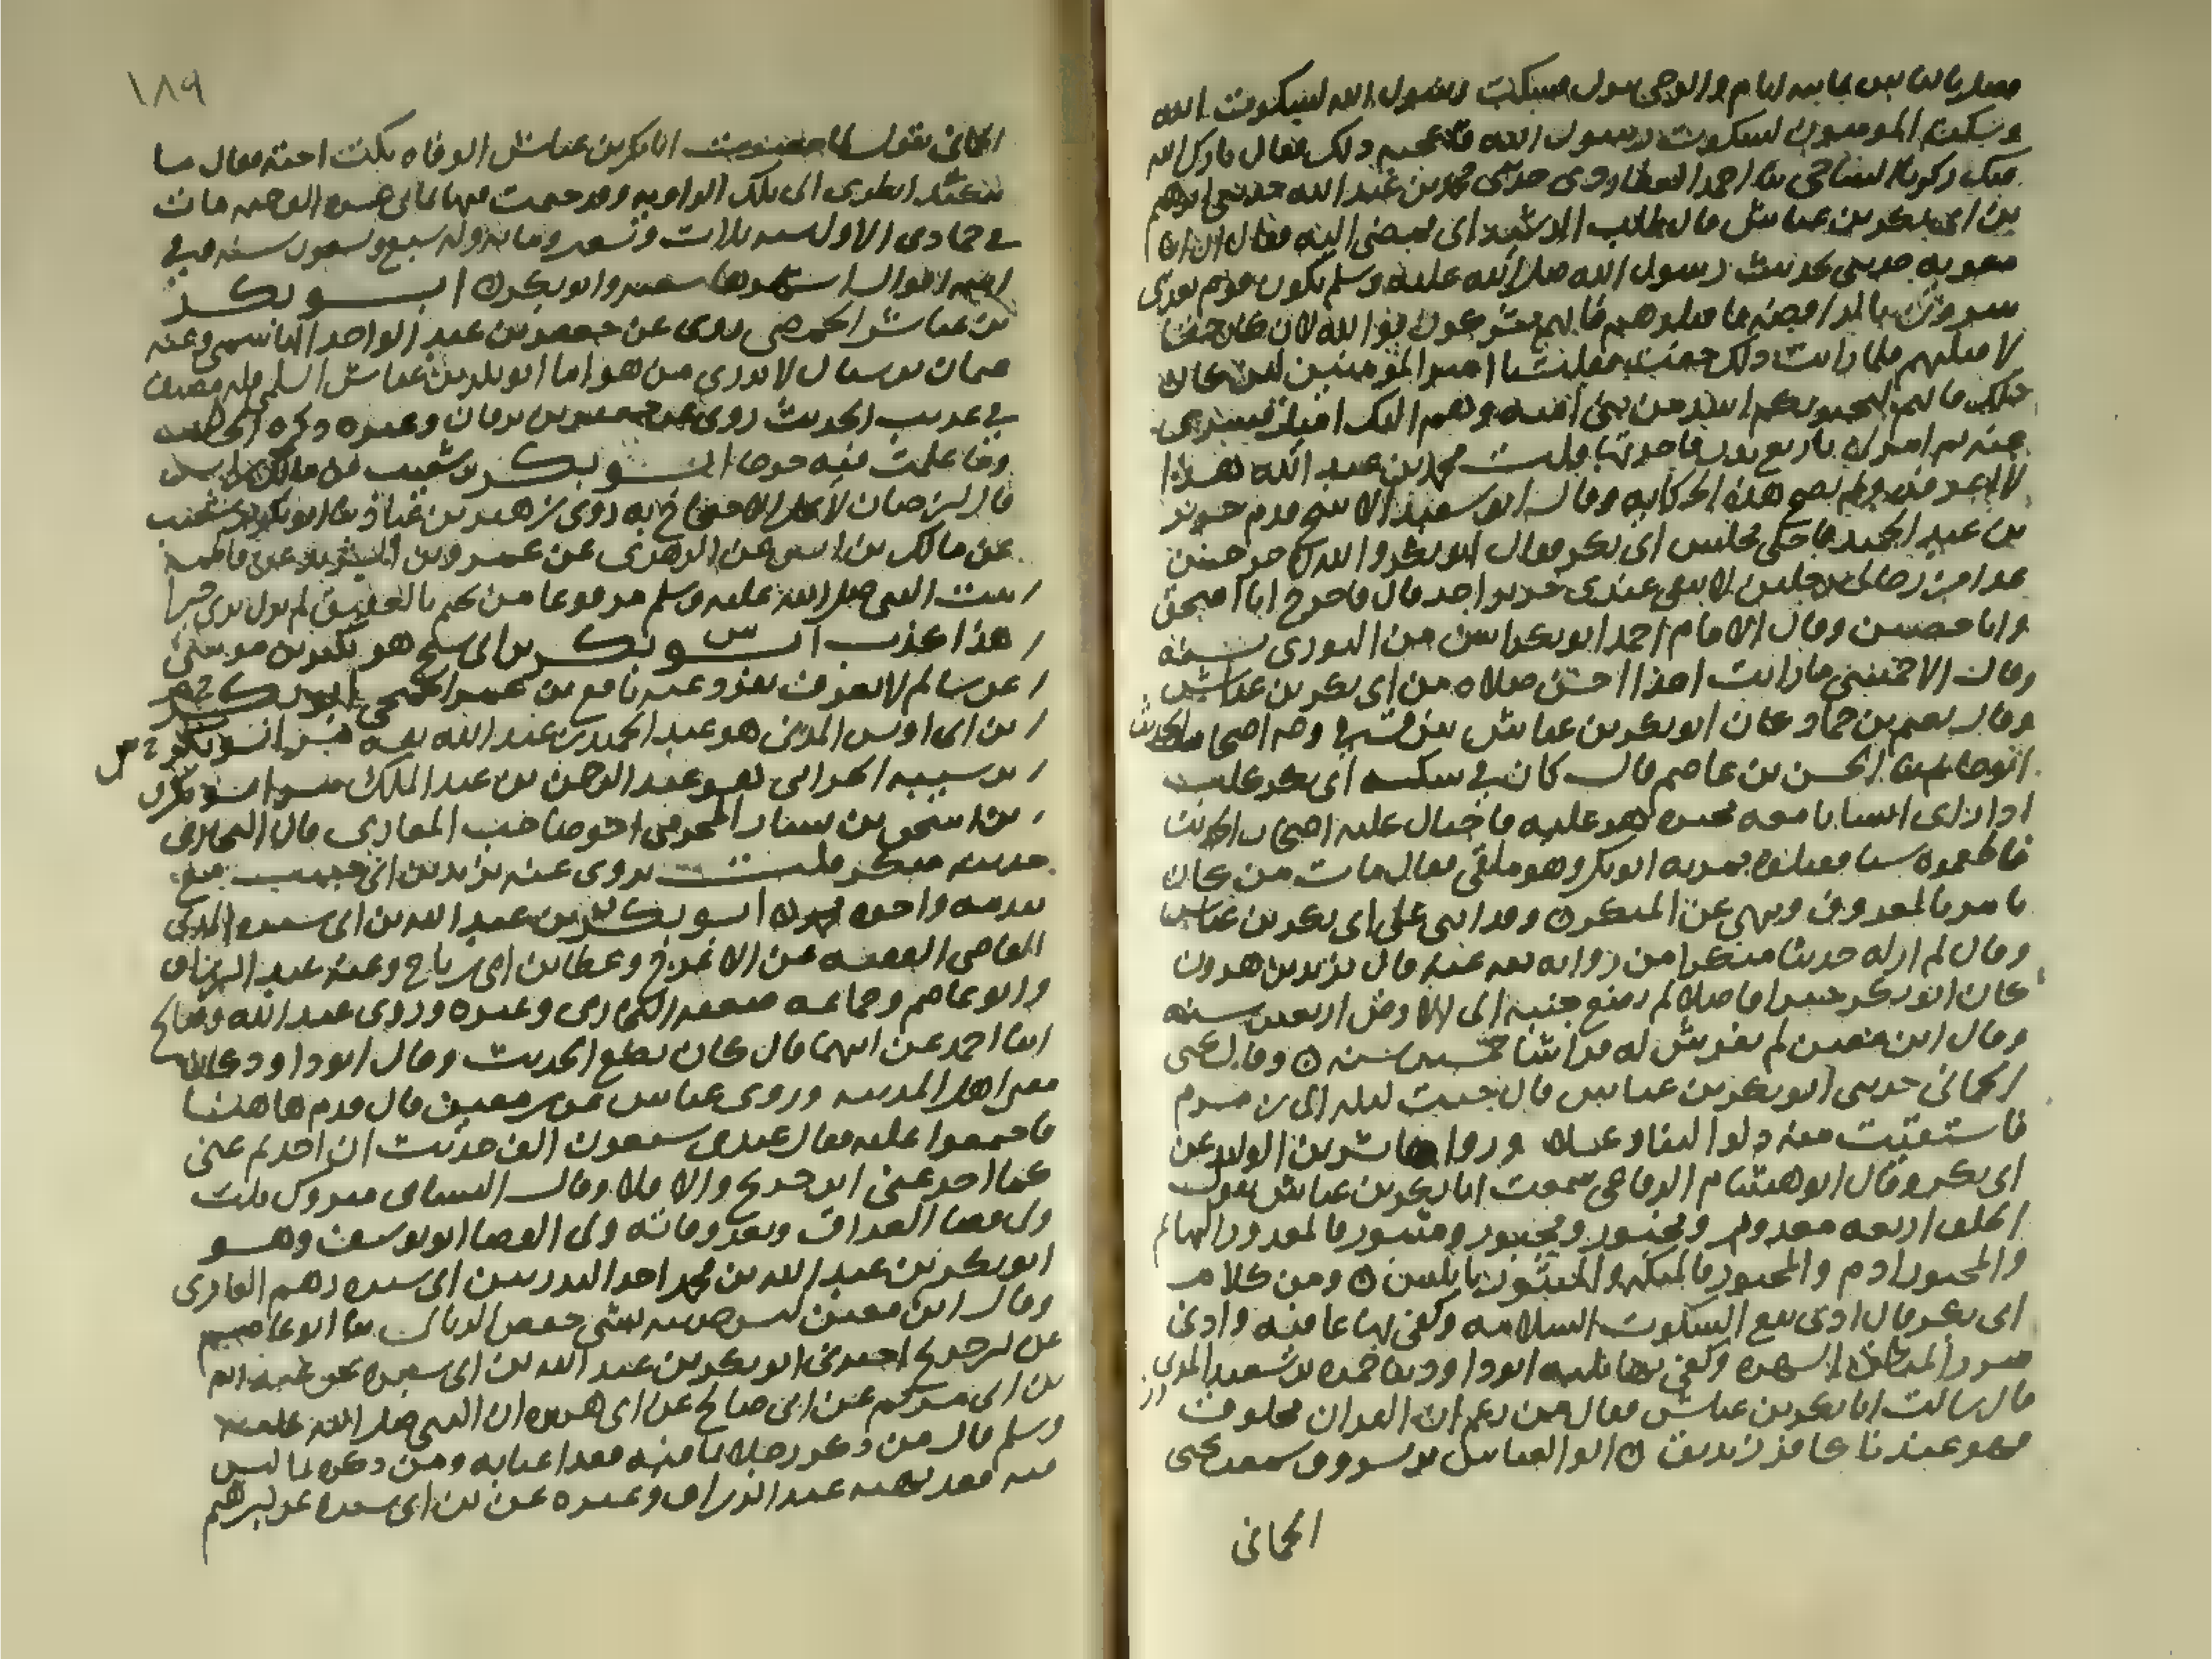 فصلى بالناس ثمانية ايام والوحي ينزل فسكت رسول الله لسكوت الله
وسكت المومنون لسكوت رسول الله فاعجبه ذلك فقال بارك الله
فيك زكريا الساجي ثنا احمد العطاردي حدثني محمد بن عبد الله حدثني ابرهيم
بن ابي بكر بن عياش قال طلب الرشيد ابي فمضى اليه فقال ان ابا
معويه حدثني بحديث رسول الله صلى الله عليه وسلم يكون قوم بعدي
ينبزون بالرافضة فاقتلوهم فانهم مشركون فوالله لان كان حقا
لاقتلنهم فلما رايت ذلك خفت فقلت يا امير المومنين لئن كان
ذلك فانهم ليحبونكم اشد من بني اميه وهم اليك اميل فسري
عنه ثم امر لي باربع بدر فاخذتها قلت محمد بن عبد الله هذا
لا اعرفه ولم تصح هذه الحكايه وقال ابو سعيد الاشج قدم جرير
بن عبد الحميد فاخلى مجلس ابي بكر فقال ابو بكر والله لاخرجن
غدا من رجالي رجلين لا يبقى عند جرير احد قال فاخرج ابا اسحق
وابا حصين وقال الامام احمد ابو بكر اسن من الثوري بسنة
وقال الاحمسي ما رايت احدا احسن صلاه من ابي بكر بن عياش
وقال نعيم بن حماد كان ابو بكر بن عياش يبزق في وجه اصحاب الحديث
ابو حاتم ثنا الحسن بن عاصم قال كان في سكة ابي بكر كلب
اذا راى انسانا معه محبره هر عليه فاحتال عليه اصحاب الحديث
فاطعموه شيا فقتلوه فمر به ابو بكر وهو ملقى فقال مات من كان
يامر بالمعروف وينهى عن المنكر وقد اثنى علي ابي بكر بن عياش
وقال لم ار له حديثا منكرا من روايه ثقه عنه قال يزيد بن هرون
كان ابو بكر خيرا فاضلا لم يضع جنبه الى الارض اربعين سنه
وقال ابن معين لم يفرش له فراش خمسين سنه وقال يحيى
الحماني حدثني ابو بكر بن عياش قال جيت ليله الى زمزم
فاستقيت منه دلوا لبنا وعسلا ورواها بشر بن الوليد عن
ابي بكر وقال ابو هشام الرفاعي سمعت ابا بكر بن عياش يقول
الخلق اربعه معذور ومخبور ومجبور ومثبور فالمعذور البهايم
والمخبور ادم والمجبور الملائكه والمثبور ابليس ومن كلام
ابي بكر قال ادنى نفع السكوت السلامه وكفى بها عافيه وادنى
ضرر المنطق الشهره وكفى بها بليه ابو داود ثنا حمزه بن سعيد المروزي
قال سالت ابا بكر بن عياش فقال من زعم ان القران مخلوق
فهو عندنا كافر زنديق ابو العباس بن مسروق سمعت يحيى
الحماني
١٨٩
الحماني يقول لما حضرت ابا بكر بن عياش الوفاه بكت اخته فقال ما
يبكيك انظري الى تلك الزاويه فقد ختمت فيها ثماني عشره الف ختمه مات
في جمادى الاولى سنه ثلاث وتسعين ومايه وله سبع وتسعون سنه
ابو بكر
بن عياش الحمصي روى عن جعفر بن عبد الواحد الهاشمي وعنه
عثمان بن شباك لا يدرى من هو اما ابو بكر بن عياش السلمي فله مصنف
في غريب الحديث روى عن جعفر بن برقان وغيره ذكره الخطيب
وما علمت فيه جرحا ابو بكر بن شعيب عن مالك بن انس
قال ابن حبان لا يجوز الاحتجاج به روى زهير بن عباد ثنا ابو بكر بن شعيب
عن مالك بن انس عن الزهري عن عمرو بن الشريد عن فاطمه
بنت النبي صلى الله عليه وسلم مرفوعا من تختم بالعقيق لم يزل يرى خيرا
هذا كذب ابو بكر بن ابي شيخ هو بكير بن موسى
عن سالم لا يعرف تفرد عنه نافع بن عمر الجمحي ابو بكر
بن ابي اويس المدني هو عبد الحميد بن عبد الله ثقه مر ابو بكر
بن شيبه الحزامي هو عبد الرحمن بن عبد الملك مر ابو بكر
بن اسحق بن يسار المخرمي اخو صاحب المغازي قال البخاري
حديثه منكر قلت يروي عنه يزيد بن ابي حبيب
ابو بكر بن عبد الله بن ابي سبره المدني
القاضي الفقيه عن الاعرج وعطا بن ابي رباح وعنه عبد الرزاق
وابو عاصم وجماعه ضعفه البخاري وغيره وروى عبد الله وصالح
ابنا احمد عن ابيهما قال كان يضع الحديث وقال ابو داود كان
مفتي اهل المدينه وروى عباس عن ابن معين قال قدم هاهنا
فاجتمعوا عليه فقال عندي سبعون الف حديث ان اخذتم عني
كما اخذ عني ابن جريج والا فلا وقال النسائي متروك قلت
ولي قضا العراق وبعد وفاته ولي القضا ابو يوسف وهو
ابو بكر بن عبد الله بن محمد احد البدريين ابي سبره بن ابي رهم العامري
وقال ابن معين ليس حديثه بشي حفص الربالي ثنا ابو عاصم
عن ابن جريج اخبرني ابو بكر بن عبد الله بن ابي سبره عن مسلم
بن ابي مريم عن ابي صالح عن ابي هريره ان النبي صلى الله عليه
وسلم قال من ذكر رجلا بما فيه فقد اغتابه ومن ذكره بما ليس
فيه فقد بهته عبد الرزاق وغيره عن بن ابي سبره عن ابرهيم